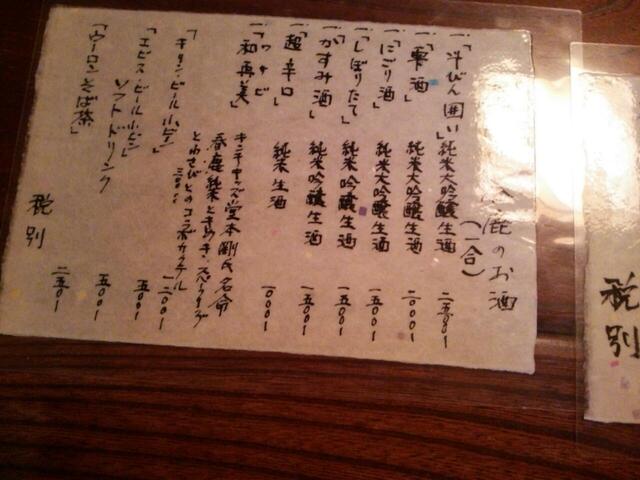 鹿のお酒
(一合)
一、「斗びん囲い」純米大吟醸生酒 二五〇〇一
一、「雫酒」 純米大吟醸生酒 二〇〇〇一
一、「にごり酒」 純米大吟醸生酒 一五〇〇一
一、「しぼりたて」 純米吟醸生酒 一五〇〇一
一、「かすみ酒」 純米吟醸生酒 一五〇〇一
一、「超辛口」 純米生酒 一〇〇〇一
一、「ワサビ
和再美」 キンキキッズ堂本剛氏名命
春鹿純米ときめき・スパークリング
とわさびとのコラボカクテル
一二〇〇一
「キリン・ビール小ビン」 五〇〇一
「エビス・ビール小ビン」 五〇〇一
ソフトドリンク
「ウーロンそば茶」 二五〇一
税別
税別